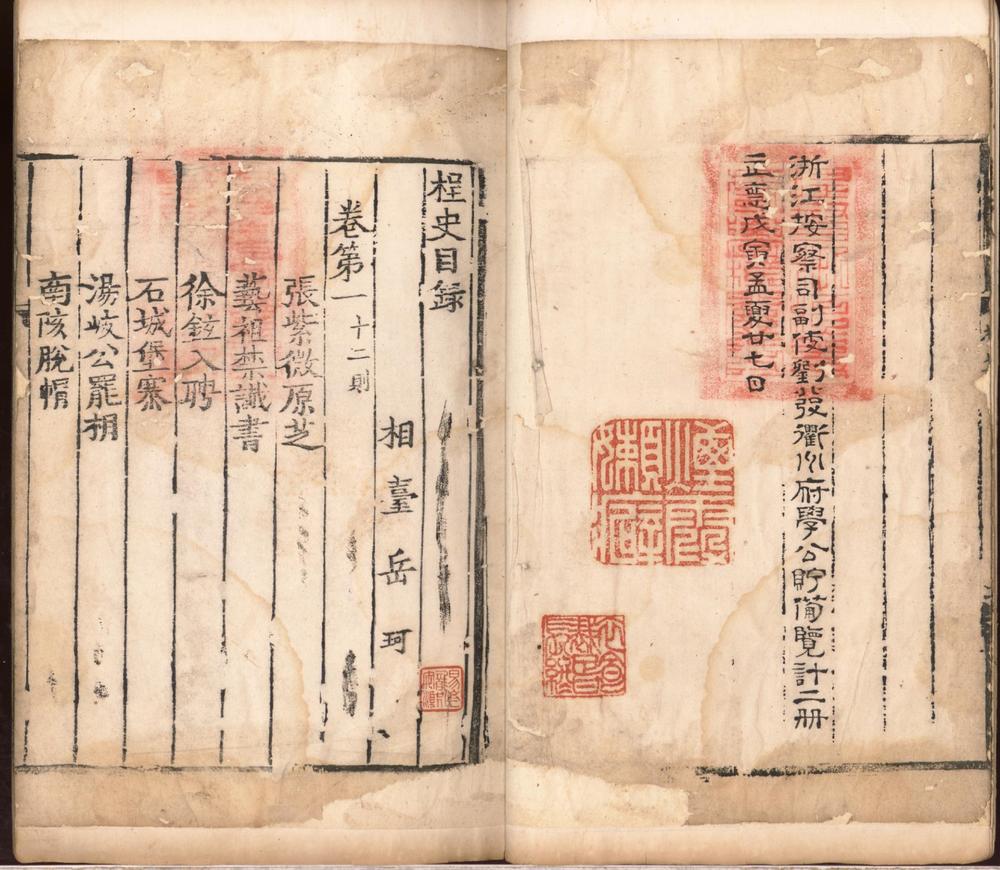 浙江按察司副使劉發衢州府學公貯備覽計二册
正悳戊寅孟夏廿七日
桯史目録
相臺岳珂
卷第一十二則
張紫微原芝
藝祖禁䜟書
徐鉉入聘
石城堡寨
湯岐公罷相
南陔脫帽